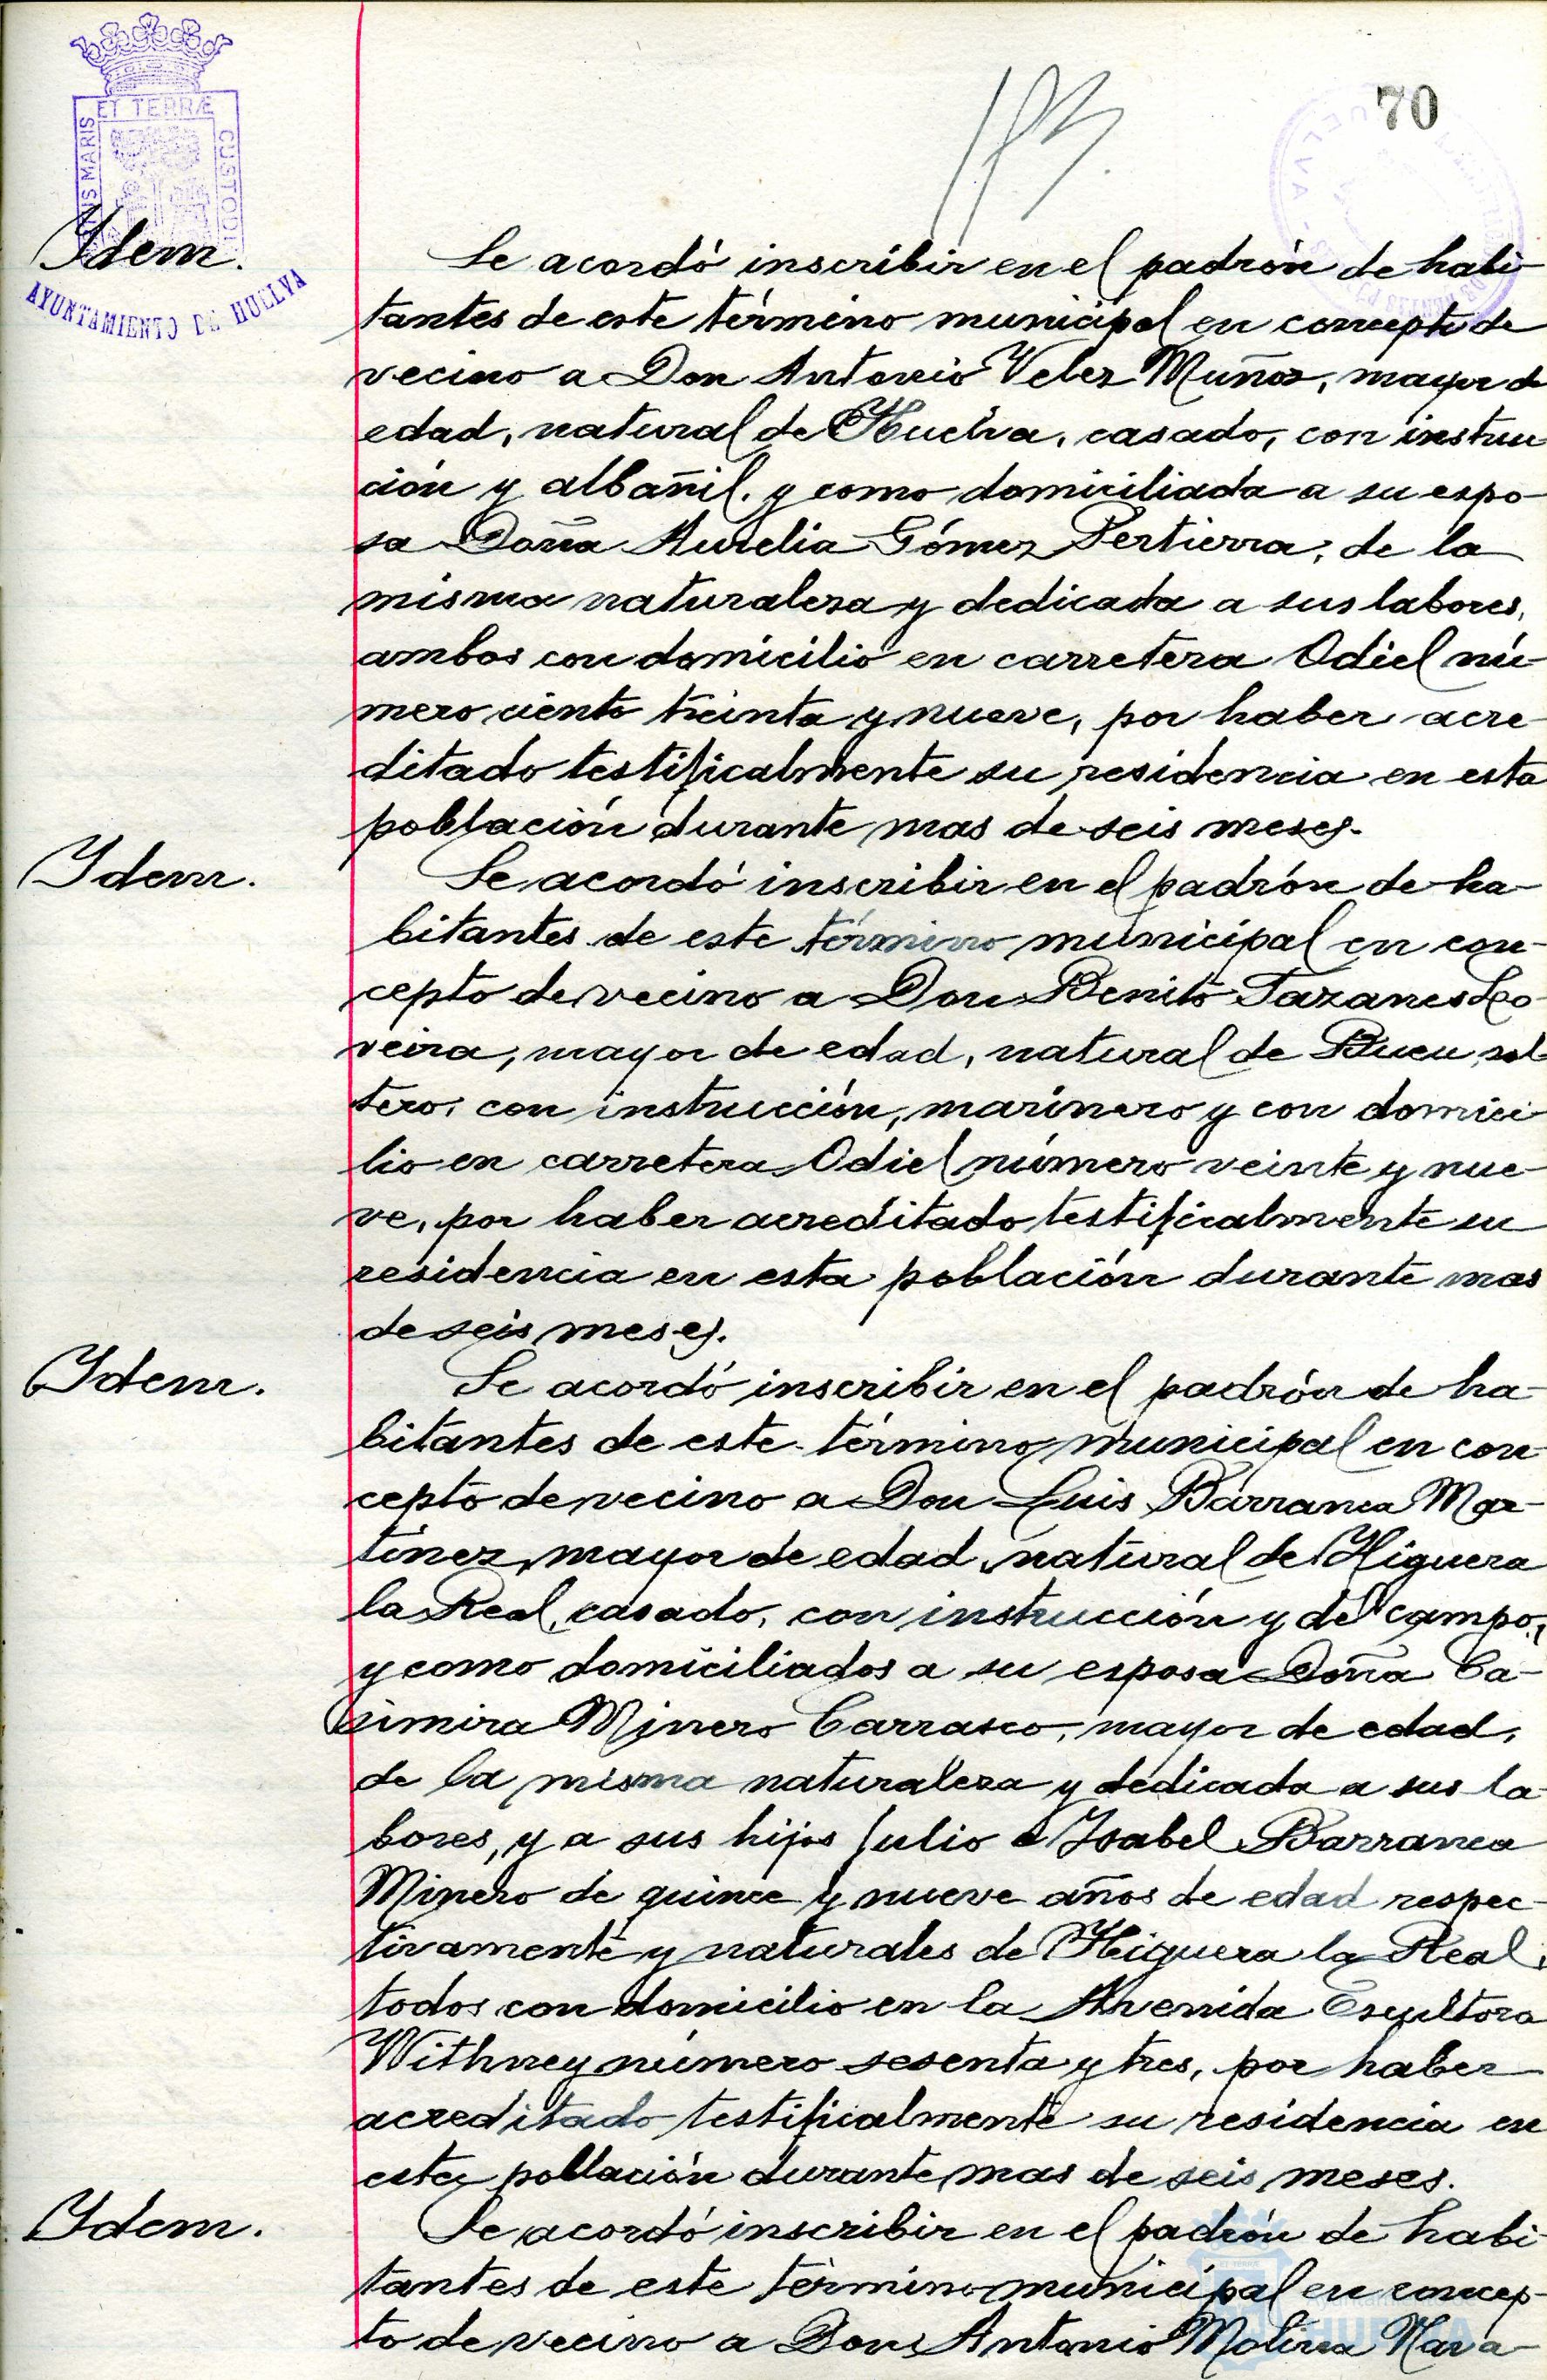 70
ET TERRÆ
MARIS
CUSTODI
AYUNTAMIENTO DE HUELVA
Ydem.
Se acordó inscribir en el padrón de habi-
tantes de este término municipal en concepto de
vecino a Don Antonio Velez Muñoz, mayor de
edad, natural de Huelva, casado, con instruc
ción y albañil. y como domiciliada a su espo-
sa Doña Aurelia Gómez Pertierra, de la
misma naturaleza y dedicada a sus labores,
ambos con domicilio en carretera Odiel nú-
mero ciento treinta y nueve, por haber acre-
ditado testificalmente su residencia en esta
población durante mas de seis meses.
Ydem.
Se acordó inscribir en el padrón de ha-
bitantes de este término municipal en con-
cepto de vecino a Don Benito Tazanes
veira, mayor de edad, natural de Bueu, sol-
tero, con instrucción, marinero y con domici-
lio en carretera Odiel número veinte y nue-
ve, por haber acreditado testificalmente su
residencia en esta población durante mas
de seis meses.
Ydem.
Se acordó inscribir en el padrón de ha-
bitantes de este término municipal en con-
cepto de vecino a Don Luis Barranca Mar-
tinez, mayor de edad, natural de Higuera
la Real, casado, con instrucción y del campo,
y como domiciliados a su esposa Doña Ca-
simira Minero Carrasco, mayor de edad,
de la misma naturaleza y dedicada a sus la-
bores, y a sus hijos Julio e Ysabel Barranca
Minero de quince y nueve años de edad respec-
tivamente y naturales de Higuera la Real,
todos con domicilio en la Avenida Escultora
Withney número sesenta y tres, por haber
acreditado testificalmente su residencia en
esta población durante mas de seis meses.
Ydem.
Se acordó inscribir en el padrón de habi-
tantes de este término municipal en concep-
to de vecino a Don Antonio Molina Nava-
HUELVA